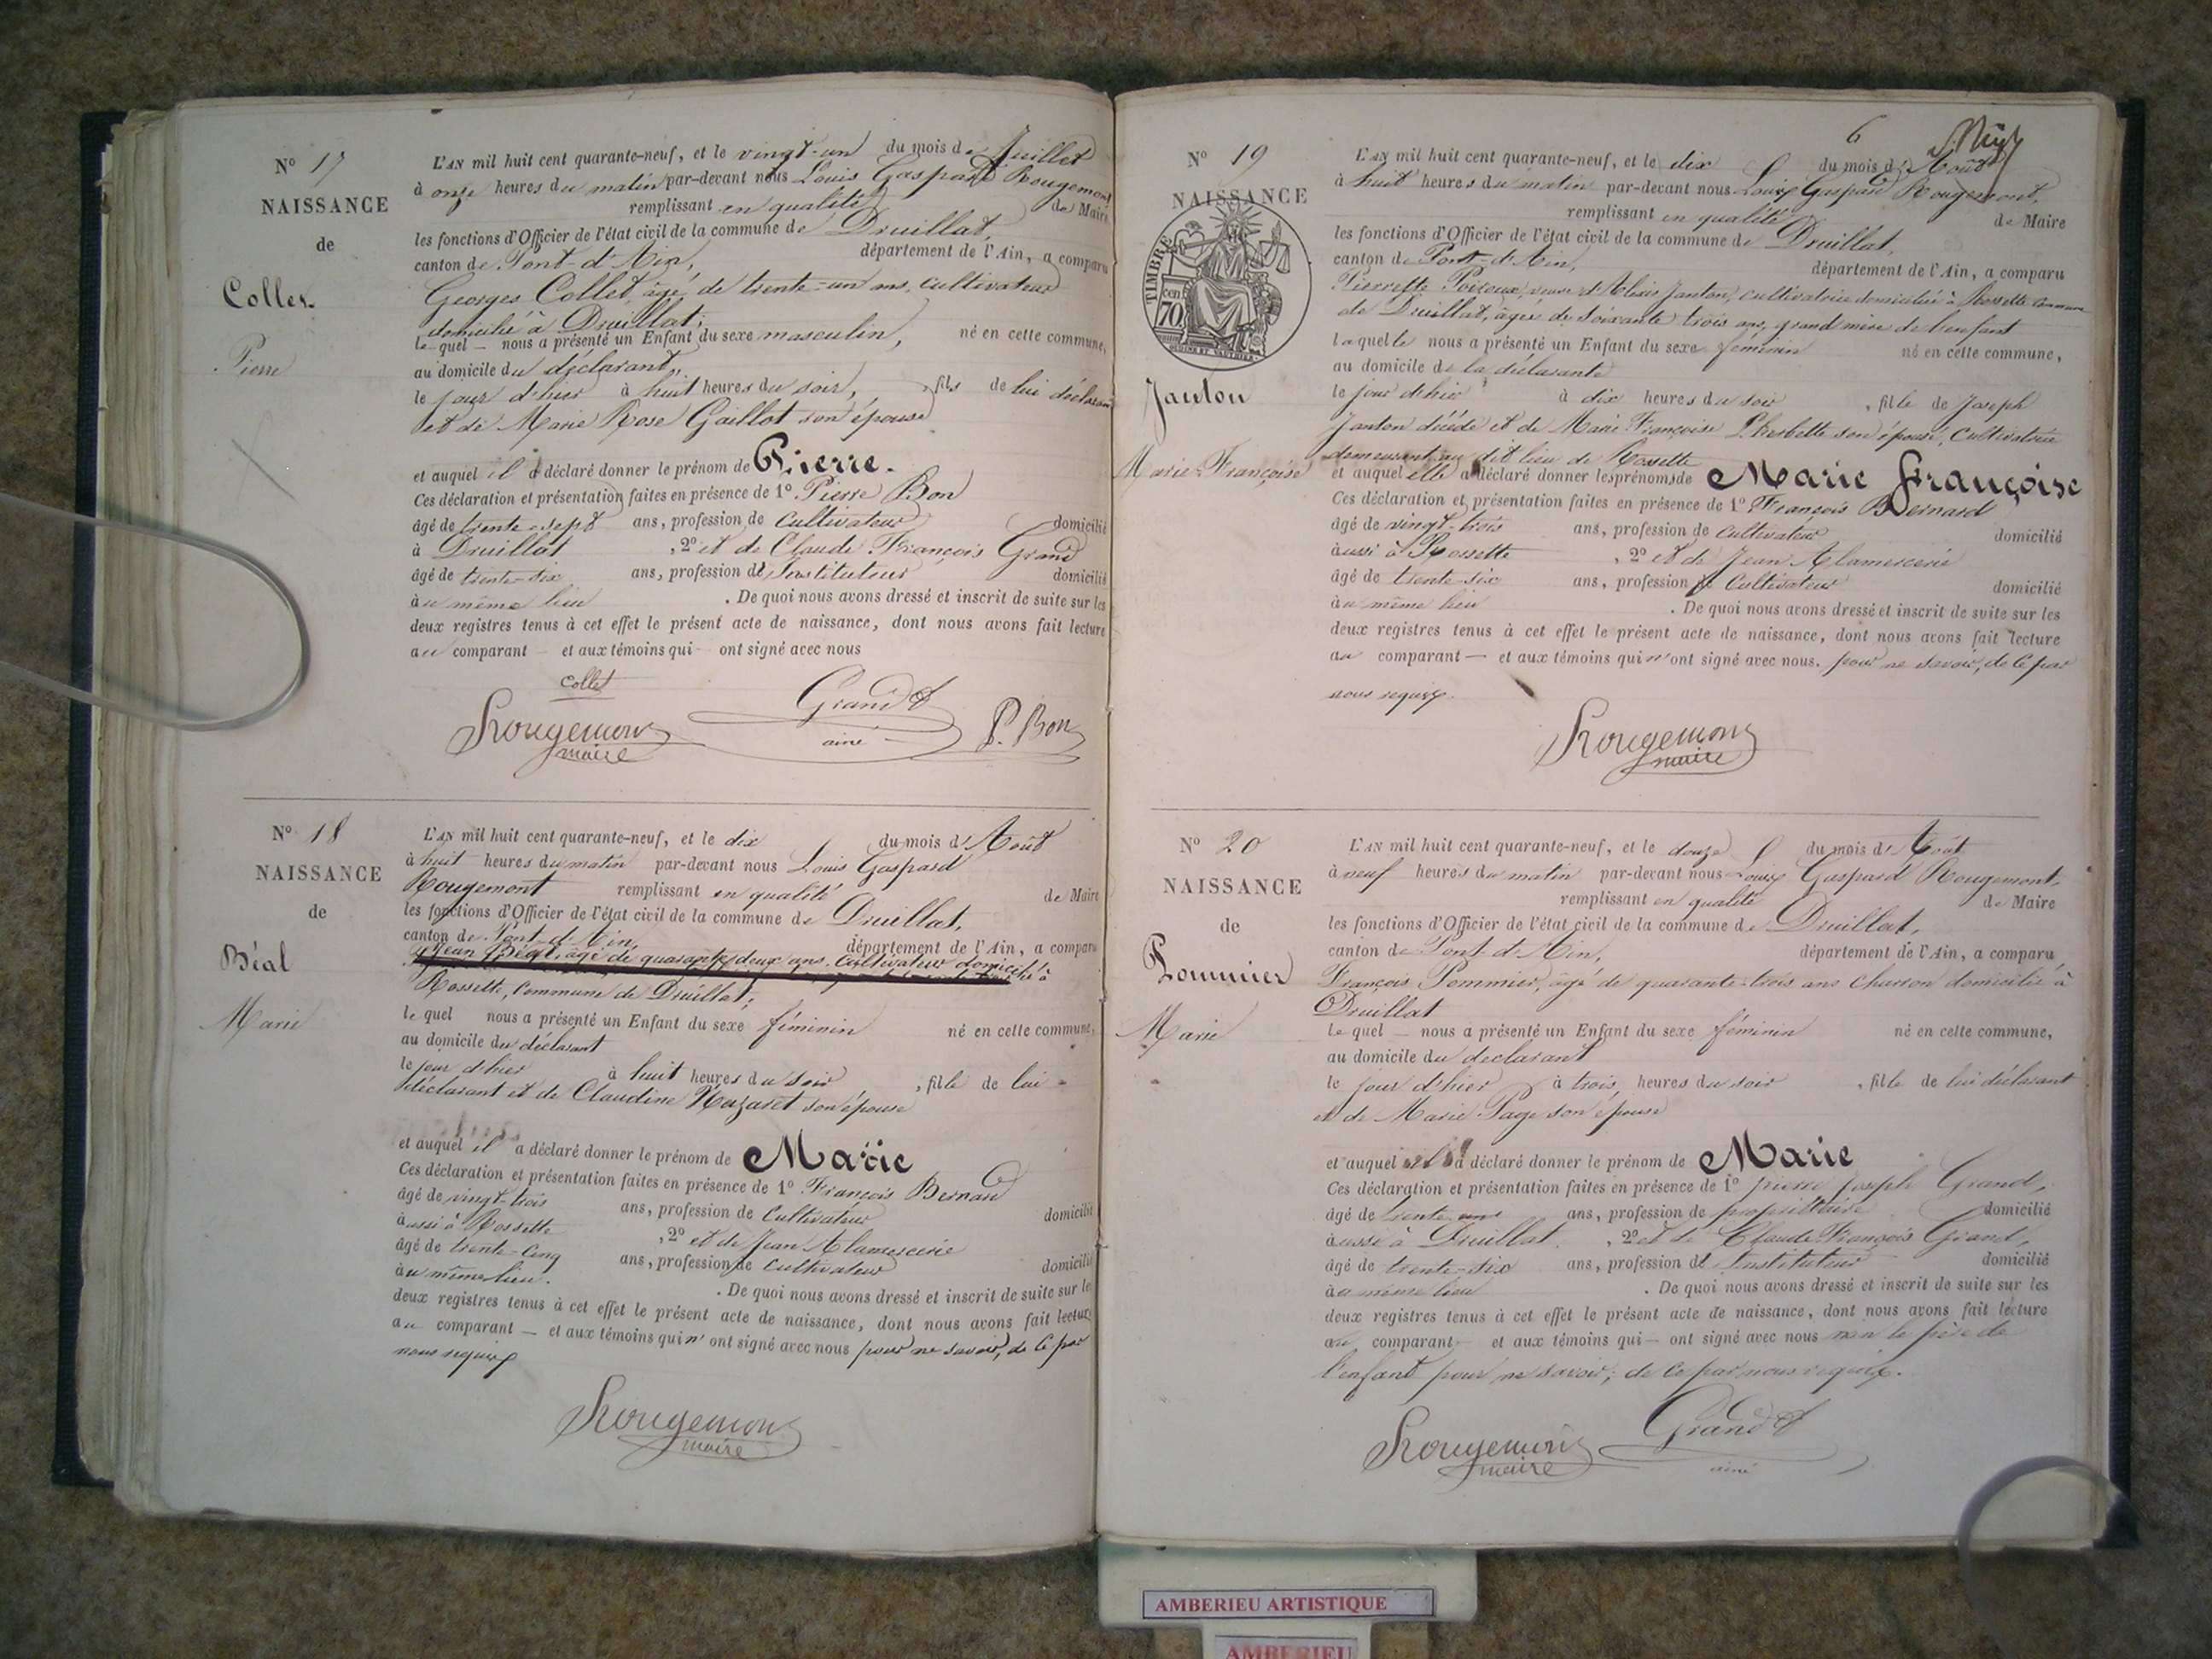 N° 17
NAISSANCE
de
Collet
Pierre
L'AN mil huit cent quarante-neuf, et le vingt-un du mois de Juillet
à onze heures du matin par-devant nous Louis Gaspard Rougemont
remplissant en qualité de Maire
les fonctions d'Officier de l'état civil de la commune de Druillat,
canton de Pont-d'Ain, département de l'Ain, a comparu
Georges Collet, âgé de trente-un ans, cultivateur
domicilié à Druillat;
lequel — nous a présenté un Enfant du sexe masculin, né en cette commune,
au domicile du déclarant,
le jour d'hier à huit heures du soir, fils de lui déclarant
et de Marie Rose Gaillot son épouse
et auquel il a déclaré donner le prénom de Pierre.
Ces déclaration et présentation faites en présence de 1° Pierre Bon
âgé de trente-sept ans, profession de Cultivateur domicilié
à Druillat , 2° et de Claude François Grand
âgé de trente-six ans, profession d'Instituteur domicilié
au même lieu . De quoi nous avons dressé et inscrit de suite sur les
deux registres tenus à cet effet le présent acte de naissance, dont nous avons fait lecture
au comparant — et aux témoins qui — ont signé avec nous
Collet
Grand
Rougemont
maire
ainé
P. Bon
N° 18
NAISSANCE
de
Béal
Marie
L'AN mil huit cent quarante-neuf, et le dix du mois d'Août
à huit heures du matin par-devant nous Louis Gaspard
Rougemont remplissant en qualité de Maire
les fonctions d'Officier de l'état civil de la commune de Druillat,
canton de Pont-d'Ain, département de l'Ain, a comparu
Jean Béal, âgé de quarante deux ans, Cultivateur domicilié à
Rossette, Commune de Druillat;
lequel nous a présenté un Enfant du sexe féminin né en cette commune,
au domicile du déclarant
le jour d'hier à huit heures du soir , fille de lui
déclarant et de Claudine Nazaret son épouse
et auquel il a déclaré donner le prénom de Marie
Ces déclaration et présentation faites en présence de 1° François Bernard
âgé de vingt-trois ans, profession de Cultivateur domicilié
aussi à Rossette , 2° et de Jean Alamercerie
âgé de trente-cinq ans, profession de Cultivateur domicilié
au même lieu. . De quoi nous avons dressé et inscrit de suite sur les
deux registres tenus à cet effet le présent acte de naissance, dont nous avons fait lecture
au comparant — et aux témoins qui n'ont signé avec nous pour ne savoir, de ce par
nous requis
Rougemont
maire
6
N° 19
NAISSANCE
TIMBRE
cen
70
Janton
Marie Françoise
L'AN mil huit cent quarante-neuf, et le dix du mois d'Août
à huit heures du matin par-devant nous Louis Gaspard Rougemont,
remplissant en qualité de Maire
les fonctions d'Officier de l'état civil de la commune de Druillat,
canton de Pont-d'Ain, département de l'Ain, a comparu
Pierrette Poizoux, veuve d'Alexis Janton, cultivatrice domiciliée à Rossette Commune
de Druillat, âgée de soixante trois ans, grand mère de l'enfant
laquelle nous a présenté un Enfant du sexe féminin né en cette commune,
au domicile de la déclarante
le jour d'hier à dix heures du soir , fille de Joseph
Janton décédé et de Marie Françoise Lherbette son épouse, Cultivatrice
demeurant au dit lieu de Rossette
et auquel elle a déclaré donner les prénoms de Marie Françoise
Ces déclaration et présentation faites en présence de 1° François Bernard
âgé de vingt-trois ans, profession de Cultivateur domicilié
aussi à Rossette , 2° et de Jean Alamercerie
âgé de trente-six ans, profession de Cultivateur domicilié
au même lieu . De quoi nous avons dressé et inscrit de suite sur les
deux registres tenus à cet effet le présent acte de naissance, dont nous avons fait lecture
au comparant — et aux témoins qui n'ont signé avec nous. pour ne savoir, de ce par
nous requis.
Rougemont
maire
N° 20
NAISSANCE
de
Pommier
Marie
L'AN mil huit cent quarante-neuf, et le douze du mois d'Août
à neuf heures du matin par-devant nous Louis Gaspard Rougemont,
remplissant en qualité de Maire
les fonctions d'Officier de l'état civil de la commune de Druillat,
canton de Pont d'Ain, département de l'Ain, a comparu
François Pommier, âgé de quarante-trois ans Charron domicilié à
Druillat
lequel — nous a présenté un Enfant du sexe féminin né en cette commune,
au domicile du déclarant
le jour d'hier à trois heures du soir , fille de lui déclarant
et de Marie Page son épouse
et auquel il a déclaré donner le prénom de Marie
Ces déclaration et présentation faites en présence de 1° pierre joseph Grand,
âgé de trente ans, profession de propriétaire domicilié
aussi à Druillat , 2° et de Claude François Grand,
âgé de trente-six ans, profession d'Instituteur domicilié
au même lieu . De quoi nous avons dressé et inscrit de suite sur les
deux registres tenus à cet effet le présent acte de naissance, dont nous avons fait lecture
au comparant — et aux témoins qui — ont signé avec nous non le père de
l'enfant pour ne savoir; de ce par nous requis.
Grand
Rougemont
maire
ainé
AMBERIEU ARTISTIQUE
AMBERIEU